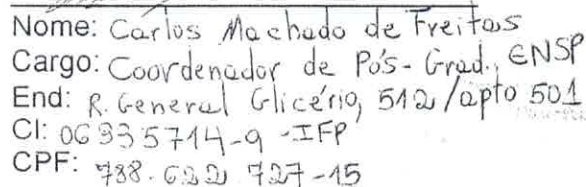 Nome: Carlos Machado de Freitas
Cargo: Coordenador de Pós-Grad., ENSP
End: R. General Glicério, 512/apto 501
CI: 06335714-9 -IFP
CPF: 788.622 727-15